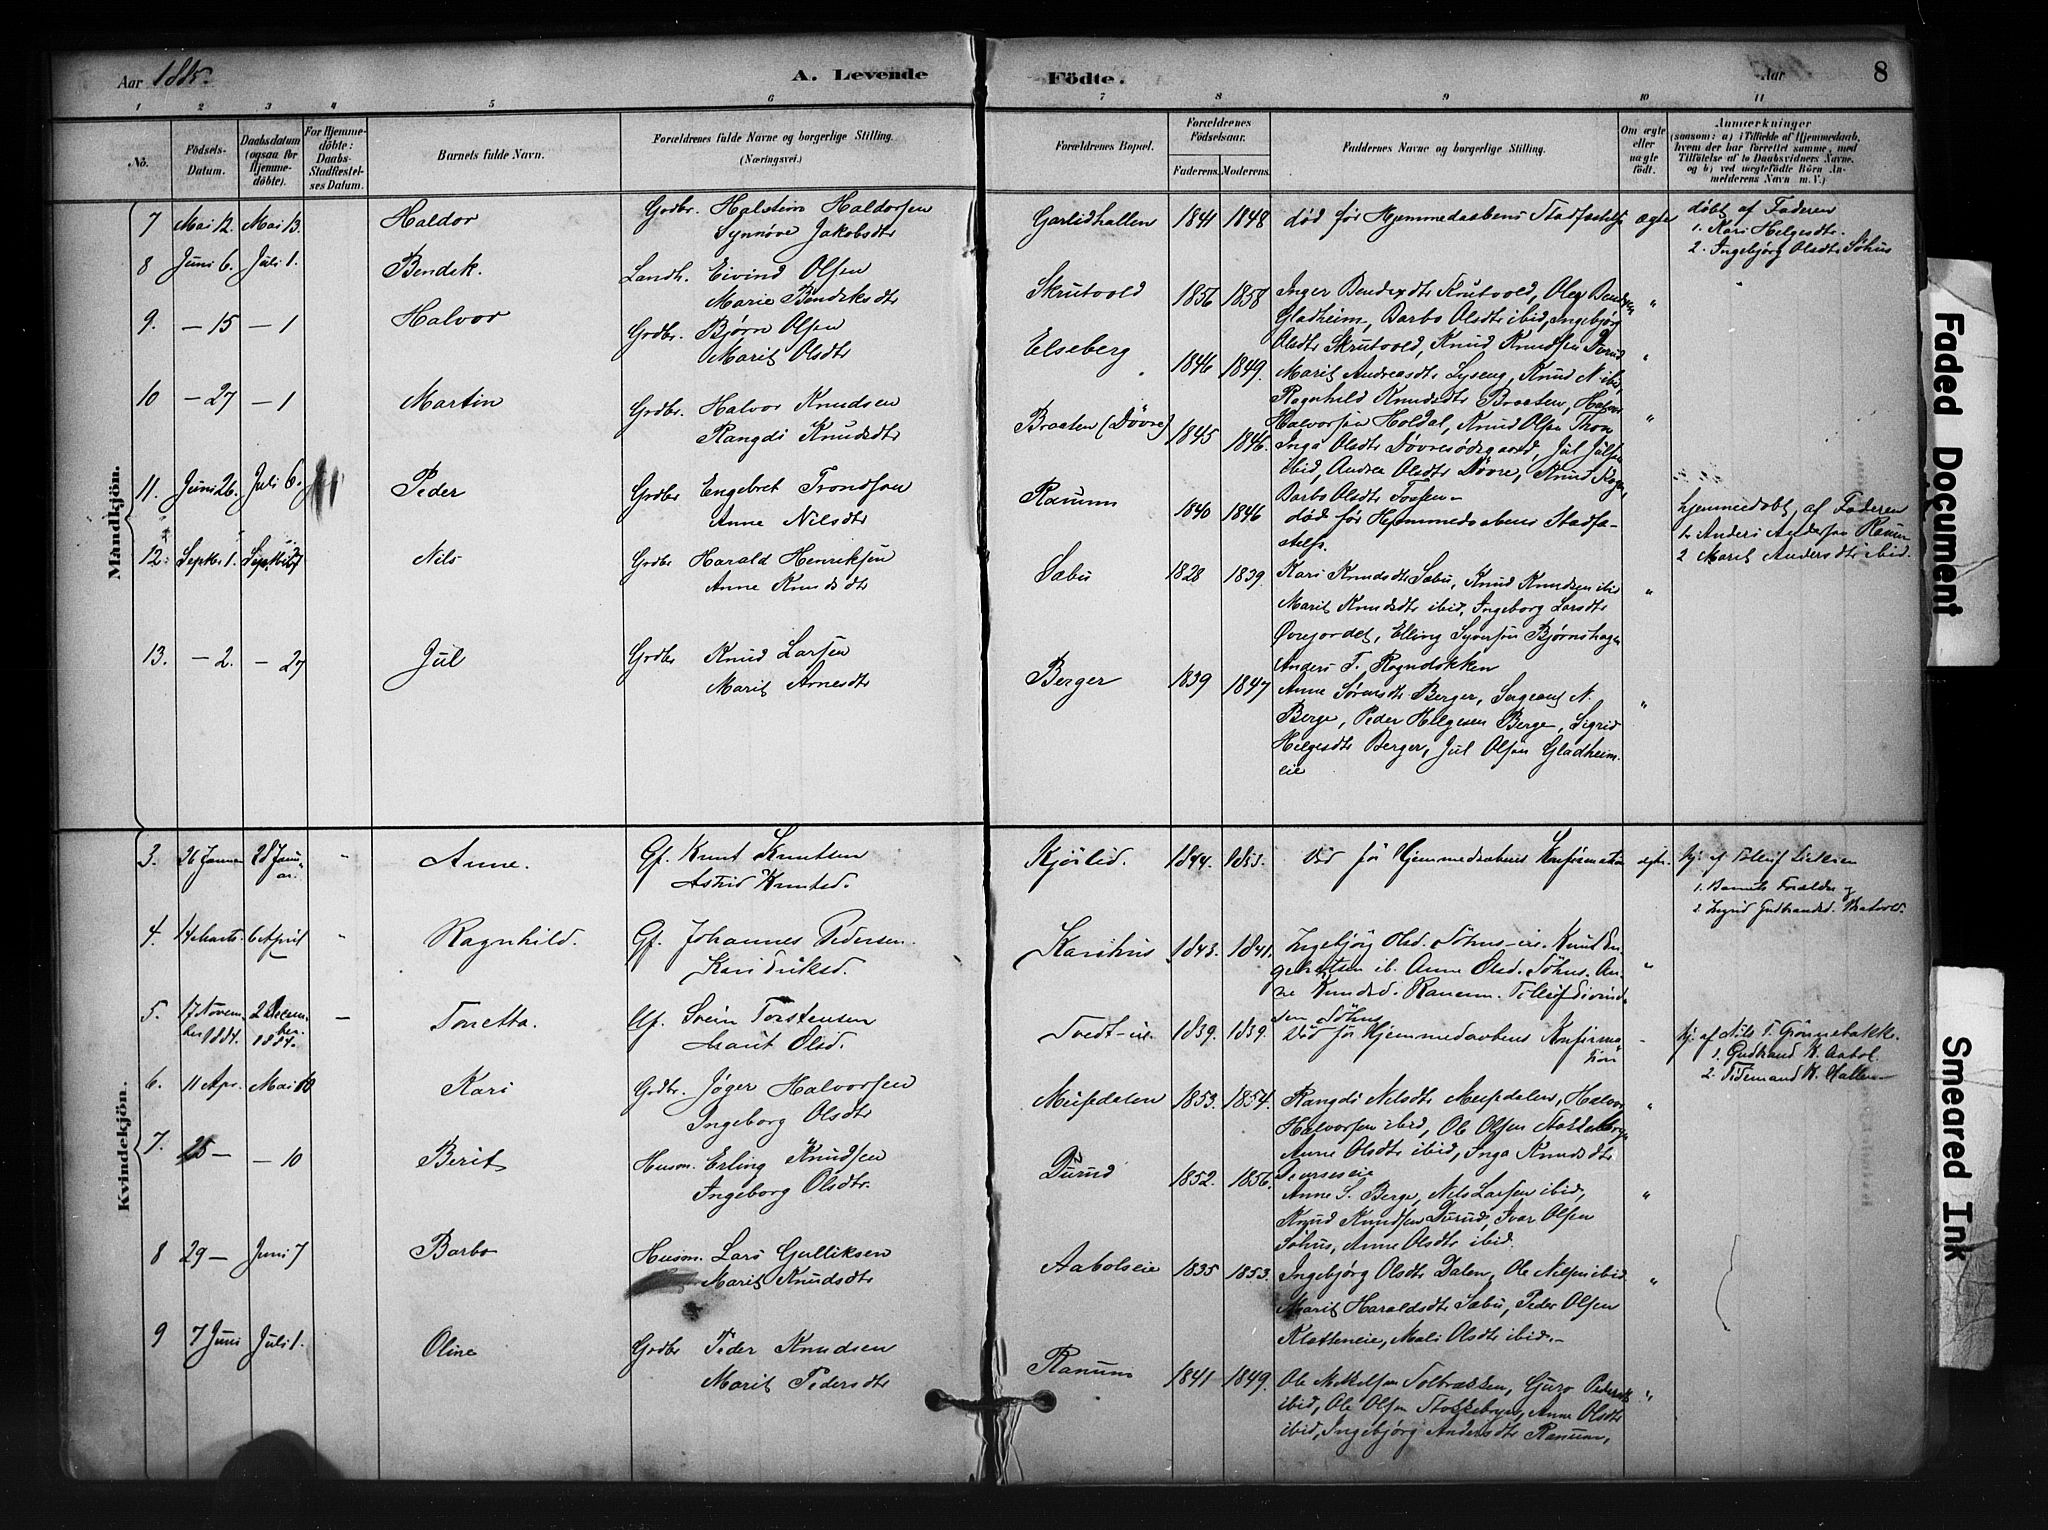 Aar 1885.
A. Levende Födte.
Aar
8
1 2 3 4 5 6 7 8 9 10 11
No.
Födsels-Datum.
Daabsdatum (ogsaa for Hjemmedöbte).
For Hjemmedöbte: Daabs-Stadfæstelses Datum.
Barnets fulde Navn.
Forældrenes fulde Navne og borgerlige Stilling. (Næringsvei.)
Forældrenes Bopæl.
Forældrenes Födselsaar.
Faderens. Moderens.
Faddernes Navne og borgerlige Stilling.
Om ægte eller uægte födt.
Anmærkninger
(saasom: a) i Tilfælde af Hjemmedaab, hvem der har forrettet samme, med Tilföielse af to Daabsvidners Navne, og b) ved uægtefödte Börn Anmelderens Navn m. V.)
Mandkjön.
7 Mai 12. Mai 13. Haldor Grdbr. Halstein Haldorsen
Synnøve Jakobsdtr
Garlidhallen 1841 1848 død før Hjemmedaabens Stadfæstelse ægte døbt af Faderen
1. Kari Helgesdtr.
2. Ingebjørg Olsdtr Søhus
8 Juni 6. Juli 1. Bendik. Landh. Eivind Olsen
Marie Bendiksdtr
Skrutvold 1856 1858 Inger Bendixdtr Skrutvold, Ole Bendixen "
Gladheim, Barbo Olsdtr ibid, Ingebjørg
Olsdtr Skrutvold, Knud Knudsen Durud
9. — 15 — 1 Halvor Grdbr. Bjørn Olsen
Marit Olsdtr
Elseberg 1846 1849. "
Marit Andreasdtr Lyseng, Knud N. ibid,
Ragnhild Knudsdtr Braaten, Halvor
Halvorsen Holdal, Knud Olsen Thon
10 — 27 — 1 Martin Grdbr. Halvor Knudsen
Rangdi Knudsdtr
Braaten (Døvre) 1845 1846. "
Inga Olsdtr Døvresødegaard, Jul Julsen
ibid, Andrea Olsdtr Døvre, Knud
Barbo Olsdtr
11. Juni 26. Juli 6. Peder Grdbr Engebret Trondsen
Anne Nilsdtr
Ranum 1840 1846 død før Hjemmedaabens Stadfæ-
stelse. hjemmedøbt af Faderen
1. Anders Andersen Ranum
2 Marit Andersdtr ibid.
12. Septbr 1. Septbr 27 Nils Grdbr Harald Henriksen
Anne Knudsdtr
Sæbu 1828 1839. Kari Knudsdtr Sæbu, Knud Knudsen ibid "
Marit Knudsdtr ibid, Ingeborg Larsdtr
Øvrejordet, Elling Syversen Bjørnshagen
Anders T. Rogndokken
13. — 2. — 27 Jul Grdbr Knud Larsen
Marit Arnesdtr
Berger 1839 1847 Anne Sørensdtr Berger, Sergeant N. "
Berge, Peder Helgesen Berge, Sigrid
Helgesdtr Berger, Jul Olsen Gladheim-
eie
Kvindekjön.
3. 26 Januar 28 Janu-
ar. " Anne. Gf. Knut Knutsen
Astrid Knutsd.
Kjørlid. 1844. 1851. Død før Hjemmedaabens Konfirmation ægte.
1. Barnets Forældre og
2. Ingrid Gudbrandsd.
4. 14 Marts. 6 April " Ragnhild. Gf. Johannes Pedersen
Kari Eriksd.
Karihus 1843. 1841. Ingebjørg Olsd. Søhus-eie. Knut En-
gebretsen ib. Anne Olsd. Søhus. An-
ne Knudsd. Ranum. Tollef Eivind-
sen Søhus "
5. 17 Novem-
ber 1884. 2 Decem-
ber. 1884. — Toretta. Uf. Svein Torstensen
Marit Olsd.
Tvedt-eie. 1839. 1839. Død før Hjemmedaabens Konfirma-
tion — Hj. af Nils T. Grønnebakke.
1. Gudbrand K. Aabol.
2. Tidemand K. Hallen
6. 11 Apr. Mai 10 Kari Grdbr. Jøger Halvorsen
Ingeborg Olsdtr
Meisdalen 1853. 1854. Rangdi Nilsdtr Meisdalen, Halvor "
Halvorsen ibid, Ole Olsen
Anne Olsdtr ibid, Inga Knudsdtr
7. 25 — — 10 Berit Husm. Erling Knudsen
Ingeborg Olsdtr.
Durud 1852. 1856. "
Anne S. Berge, Nils Larsen ibid,
Knud Knudsen Durud, Ivar Olsen
Søhus, Anne Olsdtr ibid.
8 29 — Juni 7 Barbo Husm. Lars Gulliksen
Marit Knudsdtr
Aabolseie 1835 1853. Ingebjørg Olsdtr Dalen, Ole Nilsen ibid "
Marit Haraldsdtr Sæbu, Peder Olsen
Kletteneie, Mali Olsdtr ibid. —
9 7 Juni Juli 1. Oline Grdbr Peder Knudsen
Marit Pedersdtr
Ranum 1841 1849. Ole Mikkelsen Tolvæssen, Guro Pedersdtr "
ibid, Ole Olsen Stokkebryn, Anne Olsdtr
ibid, Ingebjørg Andersdtr Ranum,
Faded Document
Smeared Ink